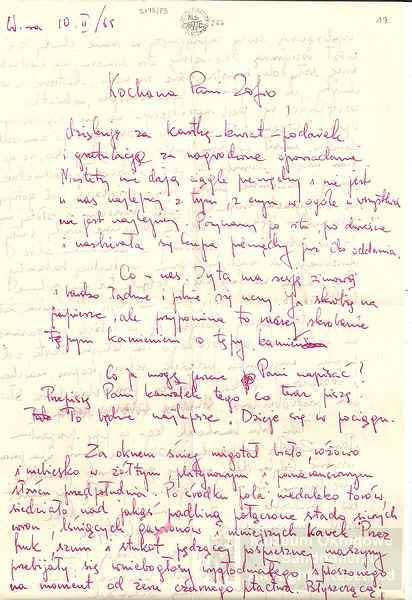 W-wa 10. II /65
17
Kochana Pani Zofio
dziękuję za kartkę-kwiat-podarek
i gratulacje za nagrodzone opowiadanie.
Niestety nie dają ciągle pieniędzy i nie jest
u nas najlepiej z tym, z czym w ogóle u wszystkich
nie jest najlepiej. Pożyczamy po sto, po dwieście
i nazbierała się kupa pieniędzy już do oddania.
Co u nas. Zyta ma sesję zimową
i bardzo ładnie i pilnie się uczy. Ja skrobię na
papierze, ale przypomina to raczej skrobanie
tępym kamieniem o tępy kamień
Co ja mogę jeszcze Pani napisać?
Przepiszę Pani kawałek tego co teraz piszę.
To będzie najlepsze. Dzieje się w pociągu.
Za oknem śnieg migotał biało, różowo
i niebiesko w żółtym, platynowym i pomarańczowym
słońcu przedpołudnia. Po środku pola, niedaleko torów
siedziało nad jakąś padliną połączone stado siwych
wron, lśniących gawronów i mniejszych kawek. Przez
huk, szum i stukot pędzącej pośpiesznej maszyny
przebijały się wniebogłosy wygłodniałego i spłoszonego
na moment od żeru czarnego ptactwa. Błyszczącej,